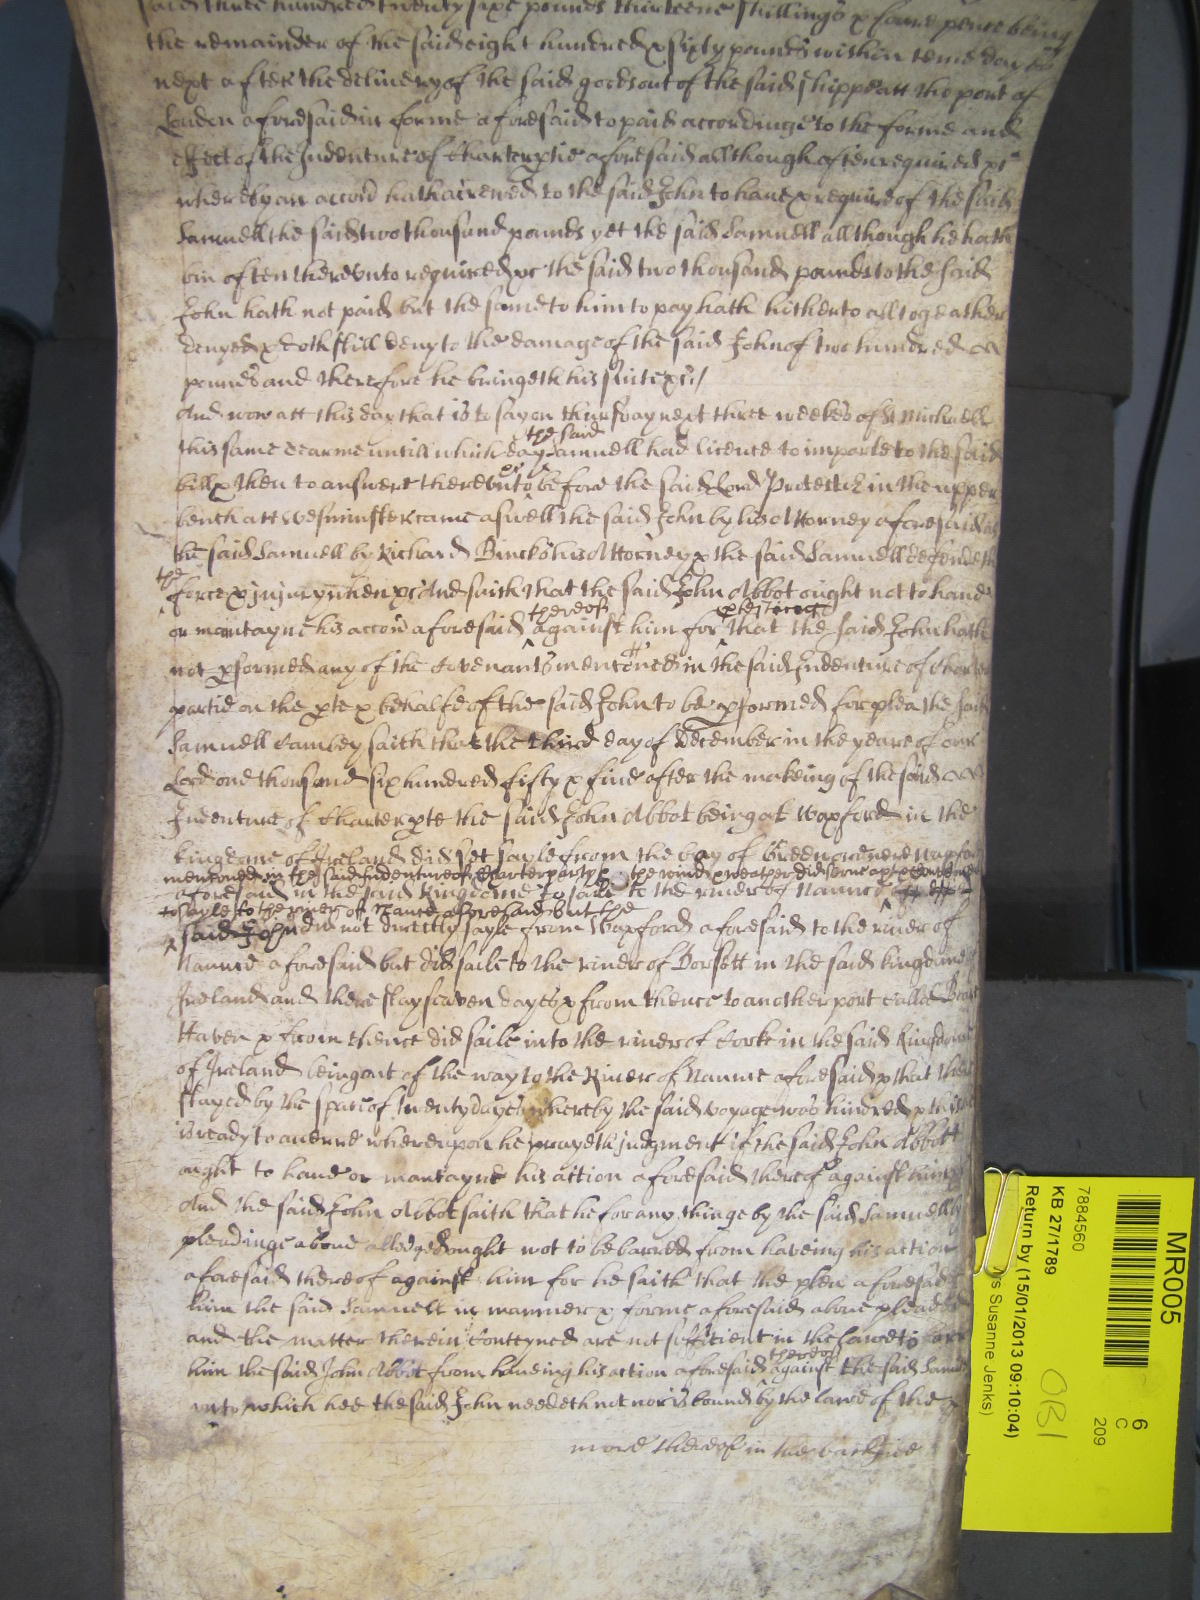 said three hundred twenty sixe pounds thirteene shillings & foure pence being
the remainder of the said eight hundred & sixty pounds within tenne dayes
next after the delivery of the said goods out of the said shippe att the port of
London aforesaid in forme aforesaid to paid accordinge to the forme and
effect of the Indenture of Charterptie aforesaid allthough often required &c
whereby an accord hath accrewed to the said John to have & require of the said
Samuell the said two thousand pounds yet the said Samuell allthough he hath
bin often thereunto required &c the said two thousand pounds to the said
John hath not paid but the same to him to pay hath hitherto alltogeather
denyed & doth still deny to the damage of the said John of two hundred
pounds and therefore he bringeth his suite &c /
And now att this day that is to say on thursday next three weekes of St Michaell
this same tearme untill which day the said Samuell had licence to imparle to the said
bill & then to answere thereunto &c before the said Lord Protector in the upper
bench att Westminster came aswell the said John by his Attorney aforesaid as
the said Samuell by Richard Bincks his Attorney & the said Samuell defendeth
the force & injury when &c And saith that the said John Abbot ought not to have
or maintayne his accon aforesaid thereof against him for that the said John hath
not pformed any of the Covenants menconed in the said Indenture of Charter
partie on the pte & behalfe of the said John to be pformed for plea the said
Samuell saith that the third day of December in the yeare of our
Lord one thousand six hundred fifty & five after the makeing of the said
Indenture of Charterpte the said John Abbot being at Waxford in the
kingdome of Ireland did set sayle from the bay of Greenore nere Waxford
mentioned in the said Indenture of Charterparty & the wind & weather did serve
aforesaid in the said Kingdome to saile to the river of Nannce
to sayle to the river of Nance aforesaid but the
said John did not directly sayle from Waxford aforesaid to the river of
Nannce aforesaid but did saile to the river of Dorsett in the said kingdome of
Ireland and there stay seaven dayes & from thence to another port called
Haven & from thence did saile into the river of Corke in the said Kingdome
of Ireland being out of the way to the River of Nannce aforesaid & that there
stayed by the space of twenty dayes whereby the said voyage was hindred & this he
is ready to averre whereupon he prayeth judgment if the said John Abbott
ought to have or mantayne his action aforesaid thereof against him &c
And the said John Abbot saith that he for any thinge by the said Samuell by
pleadinge above alledged ought not to be barred from haveing his action
aforesaid thereof against him for he saith that the plea aforesaid by
him the said Samuell in manner & forme aforesaid above pleaded
and the matter therein Conteyned are not sufficient in the lawe to barr
him the said John Abbot from haveing his action aforesaid thereof against the said Samuell
unto which hee the said John needeth not nor is bound by the lawe of the
more thereof in the backside
MR005
6
C
209
7884560
KB 27/1789
Return by (15/01/2013 09:10:04)
Susanne Jenks)
OBI